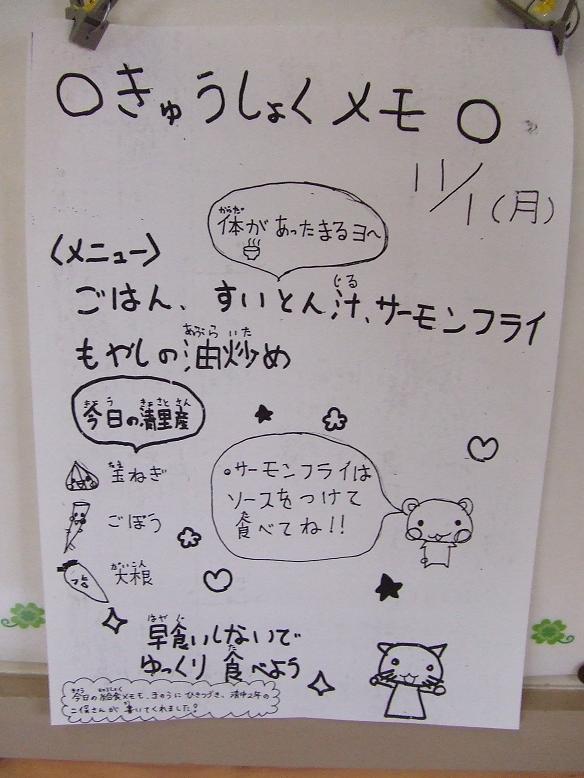 ○きゅうしょくメモ○
11/1(月)
体があったまるヨ〜
からだ
〈メニュー〉
ごはん、すいとん汁、サーモンフライ
じる
もやしの油炒め
あぶらいた
今日の清里産
きょう きよさとさん
玉ねぎ
たま
ごぼう
大根
だいこん
•サーモンフライは
ソースをつけて
食べてね!!
た
早食いしないで
はやぐ
ゆっくり食べよう
た
今日の給食メモも、きのうにひきつづき、清中2年の
きょう きゅうしょく
二保さんが書いてくれました!
か